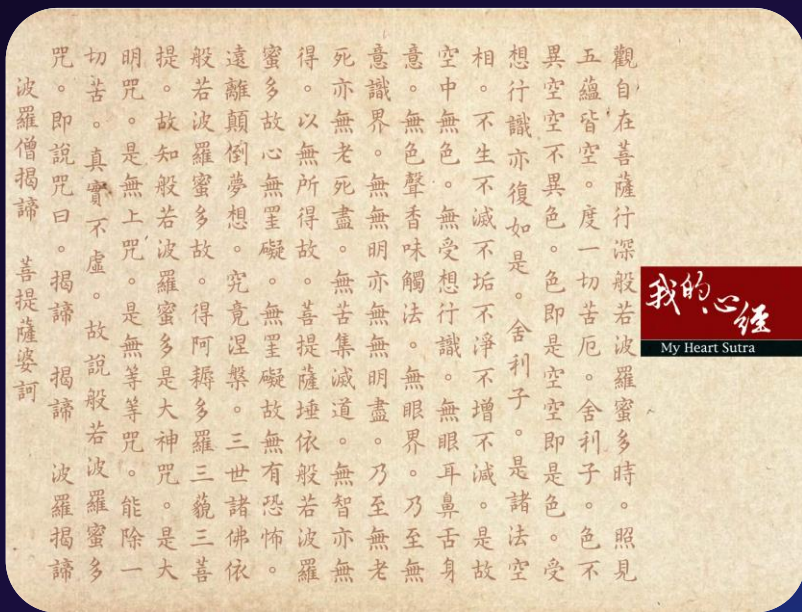 觀自在菩薩行深般若波羅蜜多時。照見
五蘊皆空。度一切苦厄。舍利子。色不
異空空不異色。色即是空空即是色。受
想行識亦復如是。舍利子。是諸法空
相。不生不滅不垢不淨不增不減。是故
空中無色。無受想行識。無眼耳鼻舌身
意。無色聲香味觸法。無眼界。乃至無
意識界。無無明亦無無明盡。乃至無老
死亦無老死盡。無苦集滅道。無智亦無
得。以無所得故。菩提薩埵依般若波羅
蜜多故心無罣礙。無罣礙故無有恐怖。
遠離顛倒夢想。究竟涅槃。三世諸佛依
般若波羅蜜多故。得阿耨多羅三藐三菩
提。故知般若波羅蜜多是大神咒。是大
明咒。是無上咒。是無等等咒。能除一
切苦。真實不虛。故說般若波羅蜜多
咒。即說咒曰。揭諦 揭諦 波羅揭諦
波羅僧揭諦 菩提薩婆訶
我的心經
My Heart Sutra